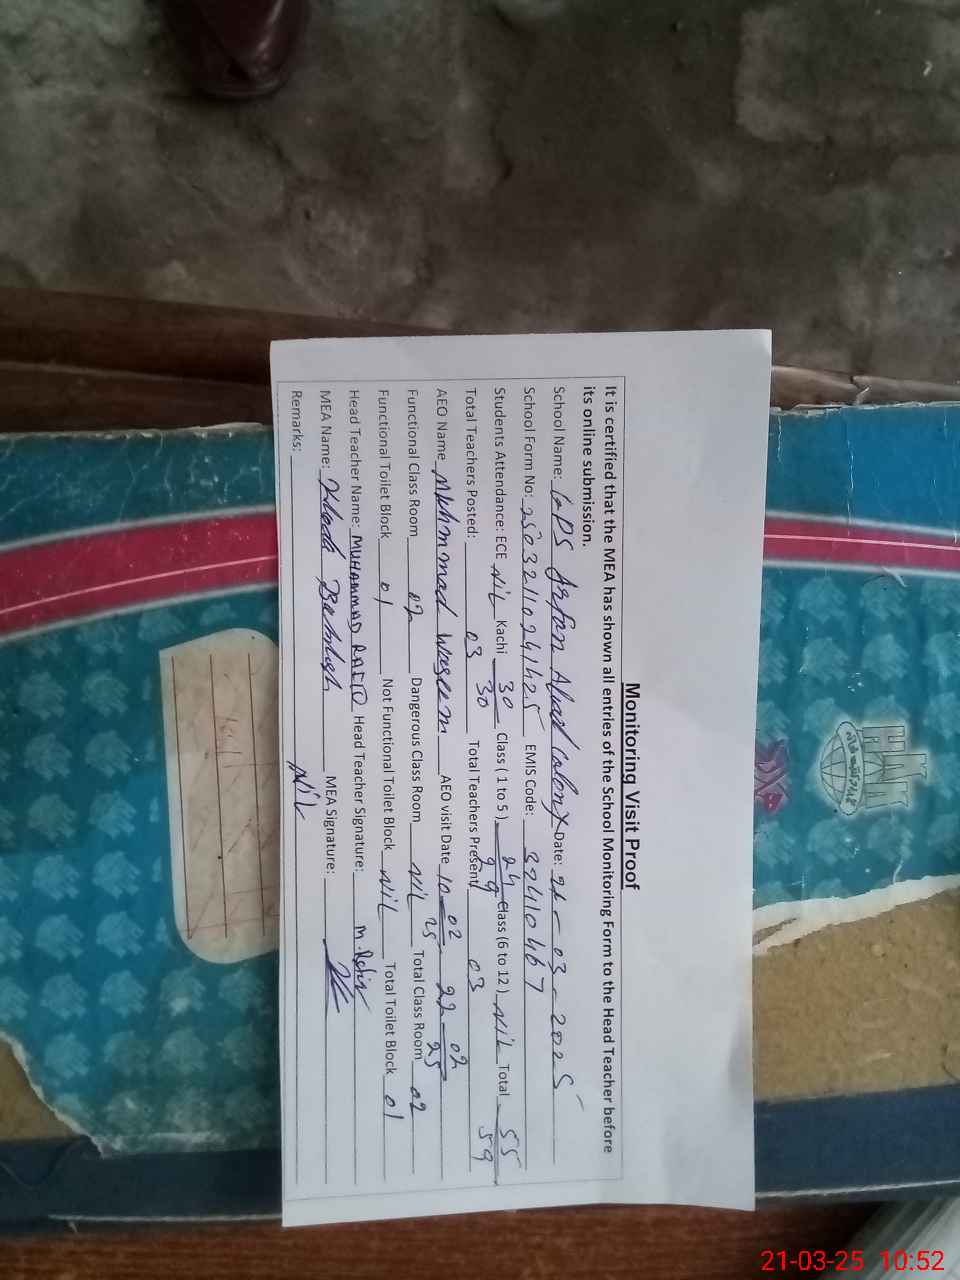 Monitoring Visit Proof
It is certified that the MEA has shown all entries of the School Monitoring Form to the Head Teacher before
its online submission.
School Name: GPS Irfan Abad Colony Date: 21-03-2025
School Form No: EMIS Code:
Students Attendance: ECE Nil Kachi 30/30 Class ( 1 to 5 ) Class (6 to 12 ) Nil Total 55/59
Total Teachers Posted: 03 Total Teachers Present 03
AEO Name Muhmmad Waseem AEO visit Date 10-02-25 22-02-25
Functional Class Room 02 Dangerous Class Room Nil Total Class Room 02
Functional Toilet Block 01 Not Functional Toilet Block Nil Total Toilet Block 01
Head Teacher Name: MUHAMMAD RAFIQ Head Teacher Signature: M. Rafiq
MEA Name: Khuda Bakhsh MEA Signature:
Remarks: Nil
21-03-25 10:52